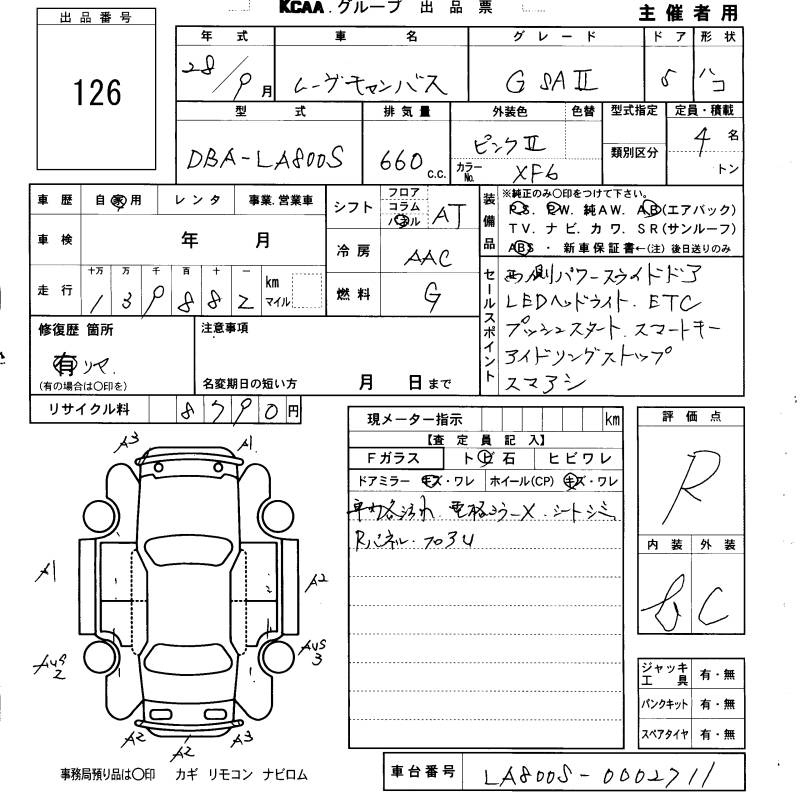 KCAA. グループ 出品票
主催者用
出品番号
126
年式 車名 グレード ドア 形状
28/9月 ムーヴキャンバス G SAⅡ 5 ハコ
型式 排気量 外装色 色替 型式指定 定員・積載
DBA-LA800S 660 c.c. ピンクⅡ 類別区分 4名
カラーNo. XF6 トン
車歴 自家用 レンタ 事業.営業車
車検 年 月
走行 十万 万 千 百 十 一 km マイル
139882
シフト フロア コラム パネル AT
冷房 AAC
燃料 G
装備品 ※純正のみ○印をつけて下さい。
P.S. P.W. 純AW. AB(エアバック)
TV. ナビ. カワ. SR(サンルーフ)
ABS ・ 新車保証書←(注) 後日送りのみ
セールスポイント
両側パワースライドドア
LEDヘッドライト. ETC
プッシュスタート. スマートキー
アイドリングストップ
スマアシ
修復歴 箇所 注意事項
有 リヤ.
(有の場合は○印を) 名変期日の短い方 月 日まで
リサイクル料 8790円
現メーター指示 km
【査定員記入】
Fガラス ト ビ 石 ヒビワレ
ドアミラー キズ・ワレ ホイール(CP) キズ・ワレ
シートシミ
Rパネル.フロアU
評価点
R
内装 外装
C
A3 A1
A1 A2
AUS2 AUS3
A2 A2 A3
ジャッキ工具 有・無
パンクキット 有・無
スペアタイヤ 有・無
事務局預り品は○印 カギ リモコン ナビロム
車台番号 LA800S-0002711